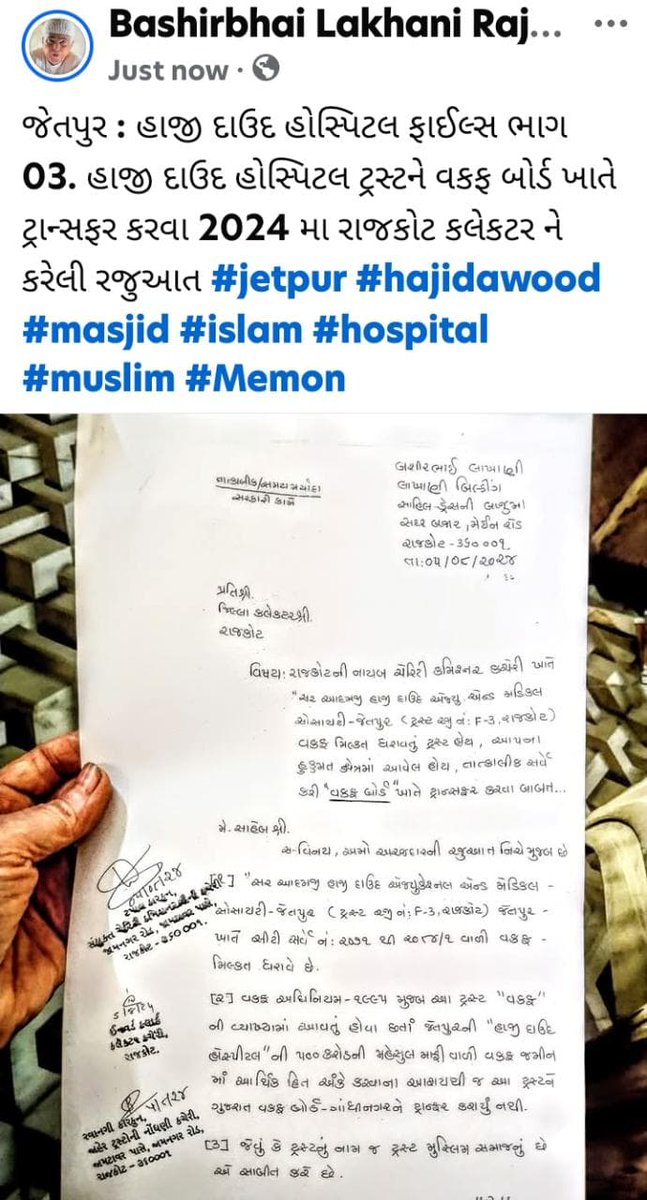 Bashirbhai Lakhani Raj...
Just now ·
જેતપુર : હાજી દાઉદ હોસ્પિટલ ફાઈલ્સ ભાગ
03. હાજી દાઉદ હોસ્પિટલ ટ્રસ્ટને વકફ બોર્ડ ખાતે
ટ્રાન્સફર કરવા 2024 મા રાજકોટ કલેકટર ને
કરેલી રજુઆત #jetpur #hajidawood
#masjid #islam #hospital
#muslim #Memon
તાત્કાલીક/સમય મર્યાદા
સરકારી કામે
બશીરભાઈ લાખાણી
લાખાણી બિલ્ડીંગ
સાહિલ ડ્રેસની બાજુમાં
સદર બજાર, મેઈન રોડ
રાજકોટ-૩૬૦૦૦૧
તા:૦૫/૦૮/૨૦૨૪
પ્રતિશ્રી.
જિલ્લા કલેકટરશ્રી.
રાજકોટ
વિષય: રાજકોટની નાયબ ચેરિટી કમિશ્નર કચેરી ખાતે
"સર આદમજી હાજી દાઉદ એજ્યુ એન્ડ મેડિકલ
સોસાયટી-જેતપુર (ટ્રસ્ટ રજી નં: F-3, રાજકોટ)
વકફ મિલ્કત ધરાવતું ટ્રસ્ટ હોય, આપના
હુકુમત ક્ષેત્રમાં આવેલ હોય, તાત્કાલીક સર્વે
કરી "વકફ બોર્ડ" ખાતે ટ્રાન્સફર કરવા બાબત...
મે. સાહેબ શ્રી.
સ-વિનય, અમો અરજદારની રજુઆત નિચે મુજબ છે
[૧] "સર આદમજી હાજી દાઉદ એજ્યુકેશનલ એન્ડ મેડિકલ -
સોસાયટી-જેતપુર (ટ્રસ્ટ રજી નં: F-3, રાજકોટ) જેતપુર -
ખાતે સીટી સર્વે નં: ૨૦૭૧ થી ૨૦૮૪/૧ વાળી વકફ -
મિલ્કત ધરાવે છે.
[૨] વકફ અધિનિયમ-૧૯૯૫ મુજબ આ ટ્રસ્ટ "વકફ"
ની વ્યાખ્યામાં આવતું હોવા છતાં જેતપુરની "હાજી દાઉદ
હોસ્પીટલ" ની ૫૦૦ કરોડની મહેસુલ માફી વાળી વકફ જમીન
માં આર્થિક હિત અંકે કરવાના આશયથી જ આ ટ્રસ્ટને
ગુજરાત વકફ બોર્ડ-ગાંધીનગરને ટ્રાન્ફર કરાયું નથી.
[૩] જેવું કે ટ્રસ્ટનું નામ જ ટ્રસ્ટ મુસ્લિમ સમાજનું છે
એ સાબીત કરે છે.
જામનગર રોડ,
રાજકોટ-૩૬૦૦૦૧.
ઈનવર્ડ કલાર્ક
કલેકટર કચેરી,
રાજકોટ.
રવાનગી કારકુન,
જાહેર ટ્રસ્ટોની નોંધણી કચેરી,
જામનગર રોડ,
રાજકોટ-૩૬૦૦૦૧